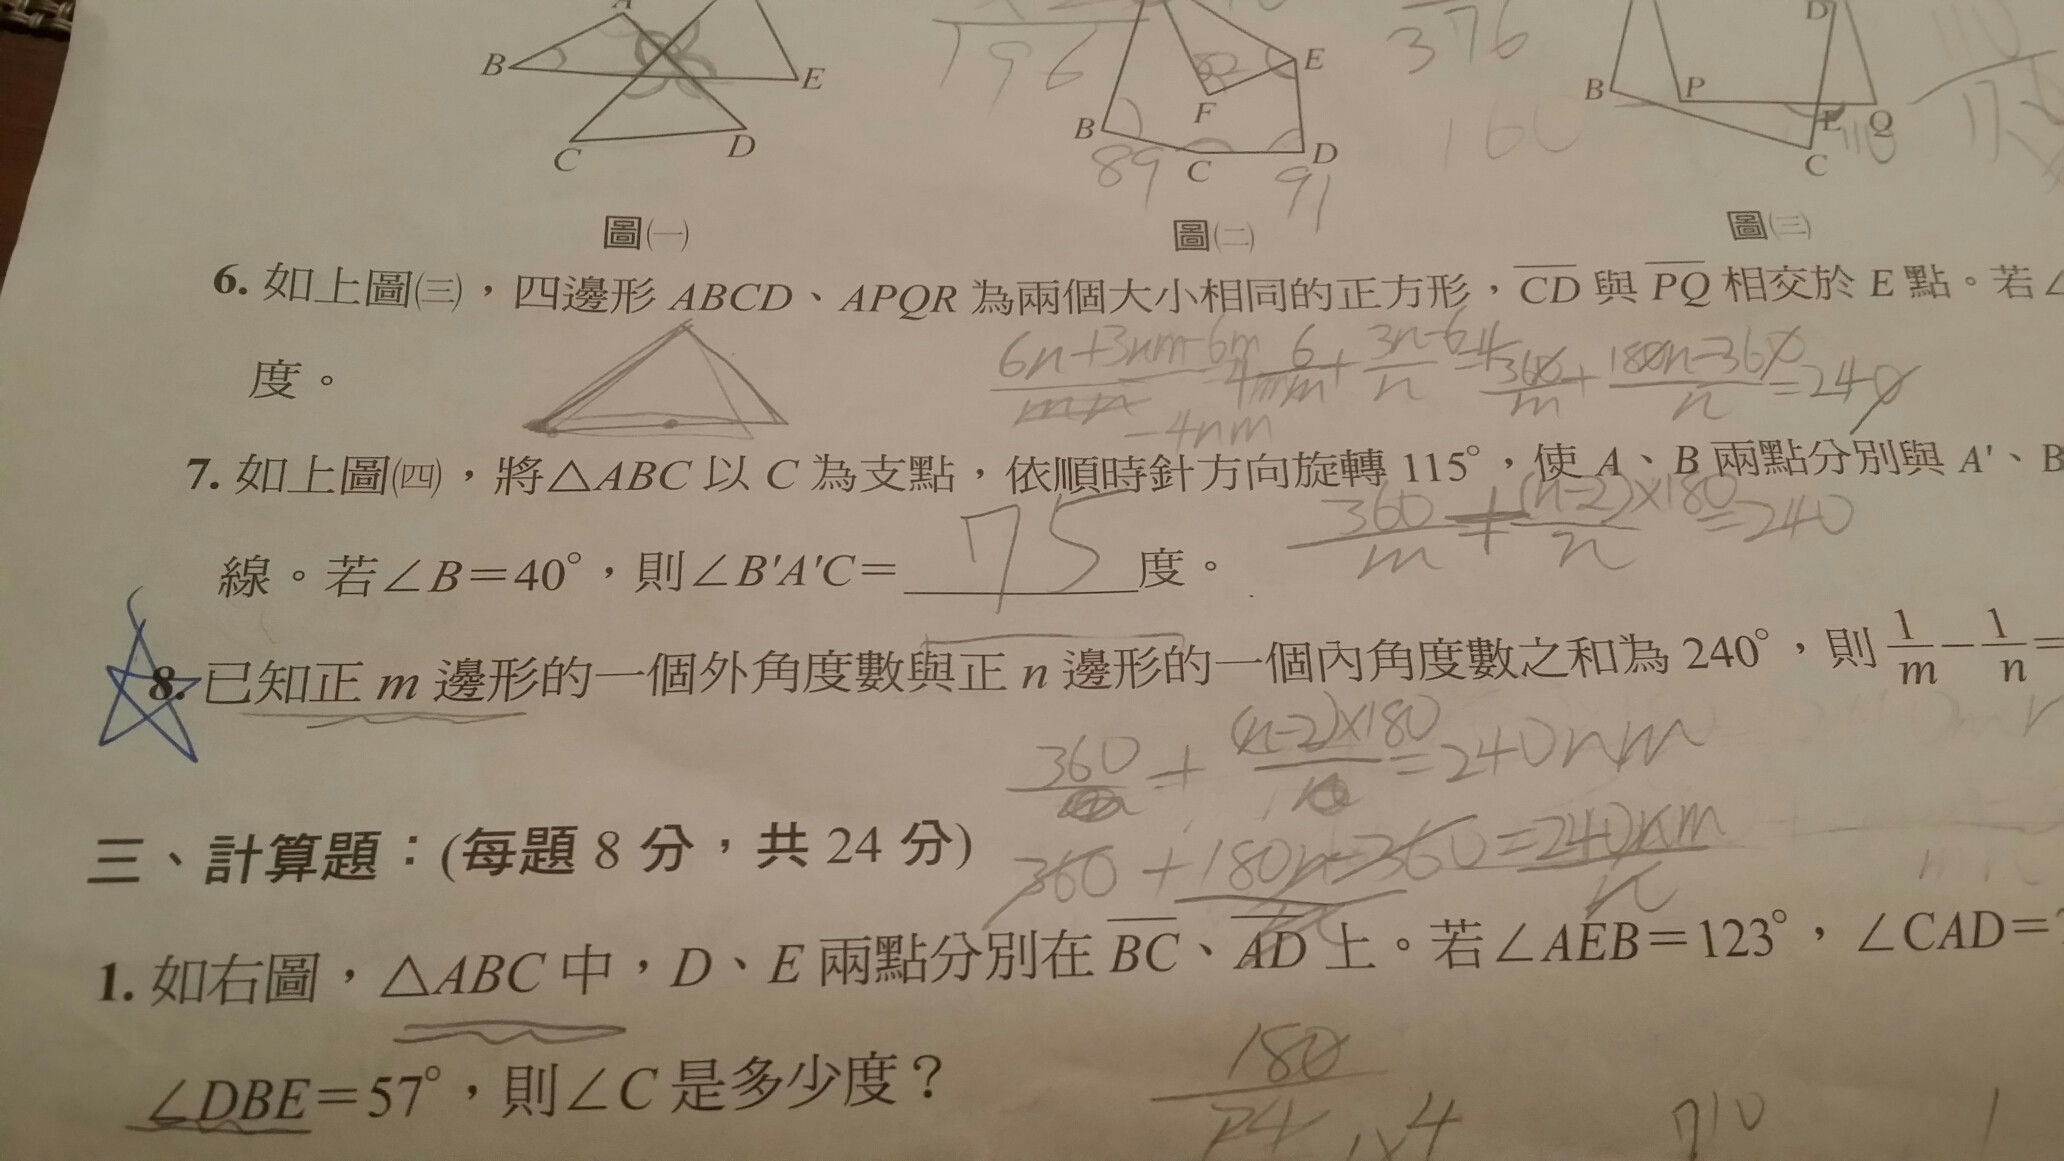 B E C D
196
B E F C D
89 91
376
160
B P D E Q C
110
圖㈠ 圖㈡ 圖㈢
6. 如上圖㈢，四邊形 ABCD、APQR 為兩個大小相同的正方形，CD 與 PQ 相交於 E 點。若∠
度。
7. 如上圖㈣，將△ABC 以 C 為支點，依順時針方向旋轉 115°，使 A、B 兩點分別與 A'、B
360/m + (n-2)×180/n = 240
線。若∠B=40°，則∠B'A'C= 75 度。
8. 已知正 m 邊形的一個外角度數與正 n 邊形的一個內角度數之和為 240°，則 1/m - 1/n =
(n-2)×180 = 240nm
360
三、計算題：(每題 8 分，共 24 分)
360 + 180n-360 = 240nm
1. 如右圖，△ABC 中，D、E 兩點分別在 BC、AD 上。若∠AEB=123°，∠CAD=
∠DBE=57°，則∠C 是多少度？
180